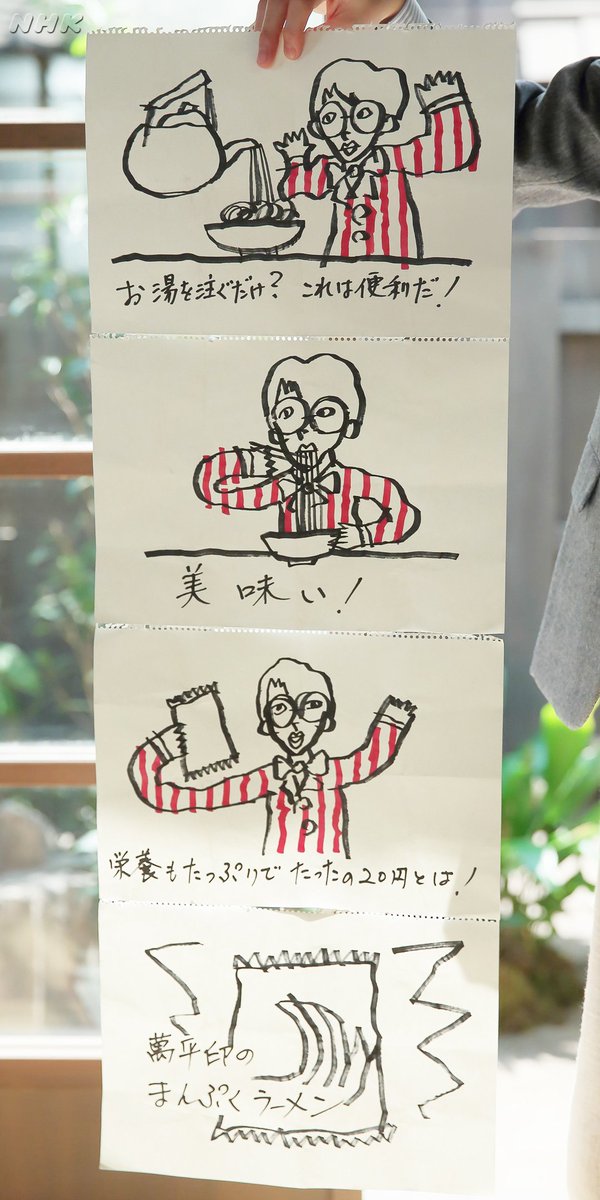 NHK
お湯を注ぐだけ? これは便利だ!
美味い!
栄養もたっぷりでたったの20円とは!
萬平印の
まんぷくラーメン